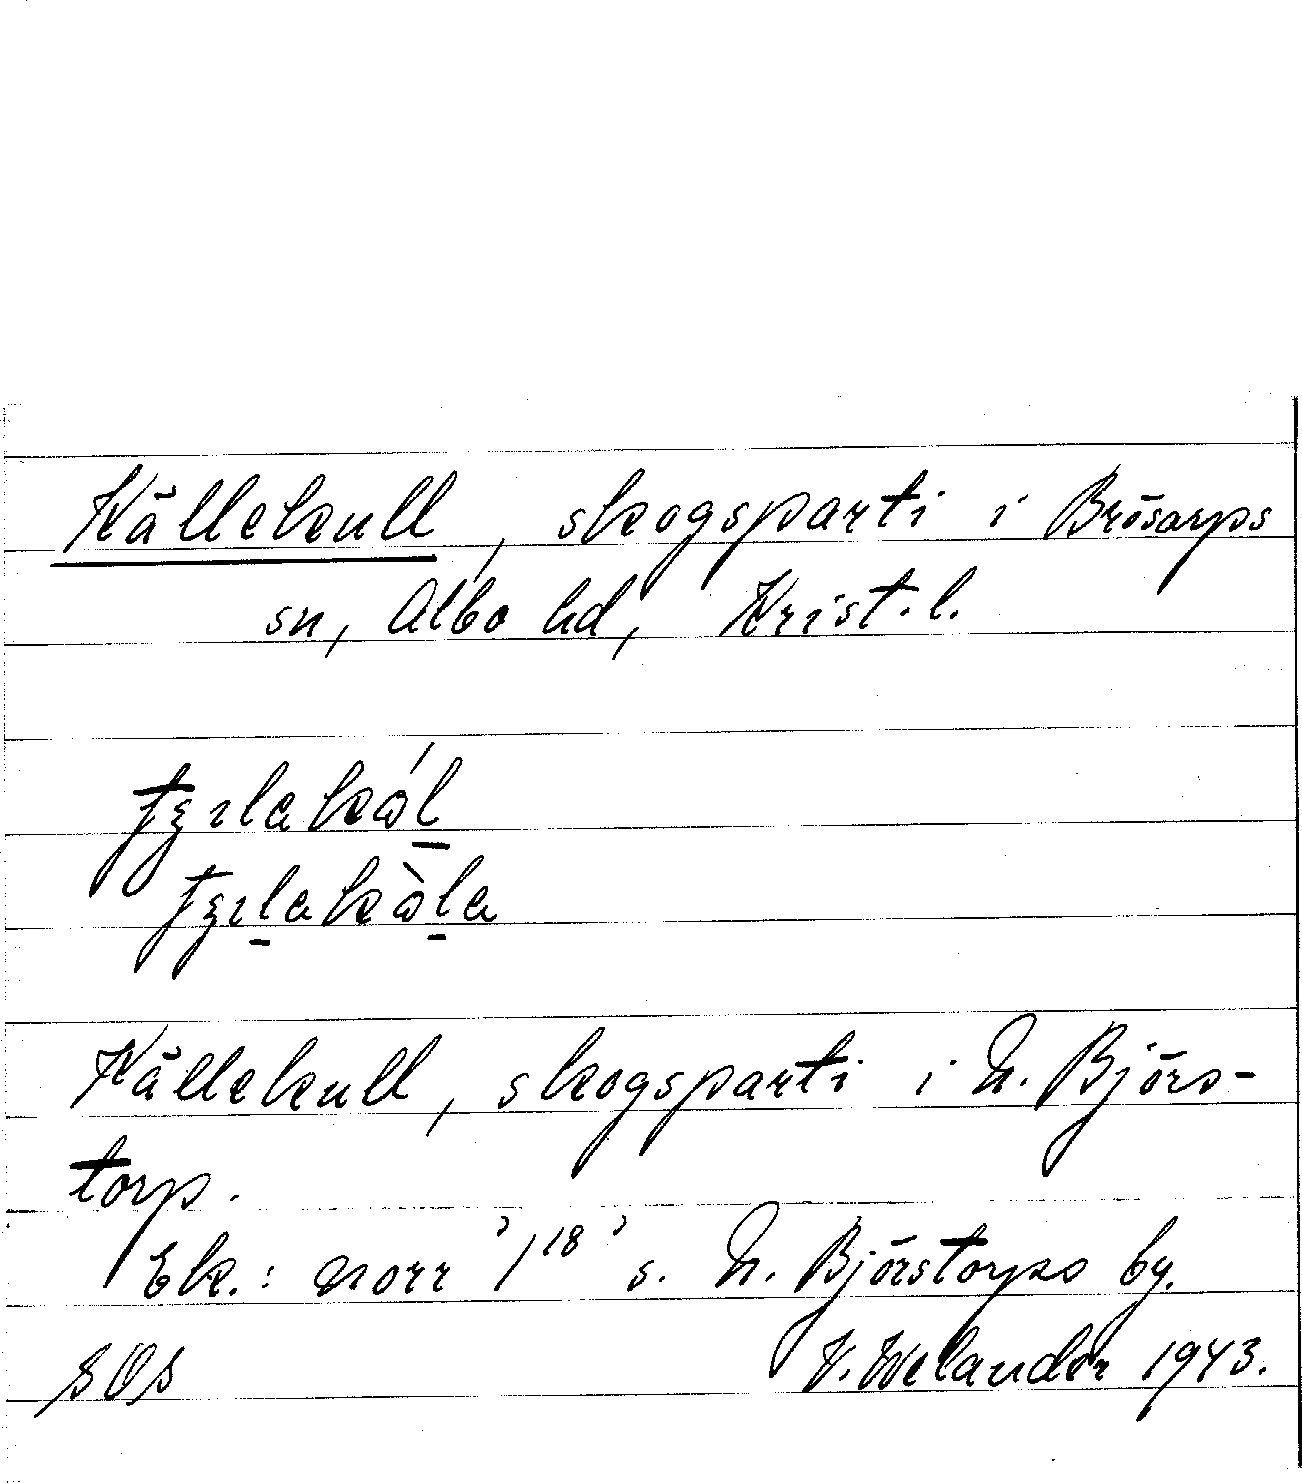 Källekull, skogsparti i Brösarps
sn, Albo hd, Krist. l.
Källekull, skogsparti i N. Björs-
torp.
Ek.: norr s. N. Björstorps by.
SOS V. Welander 1943.